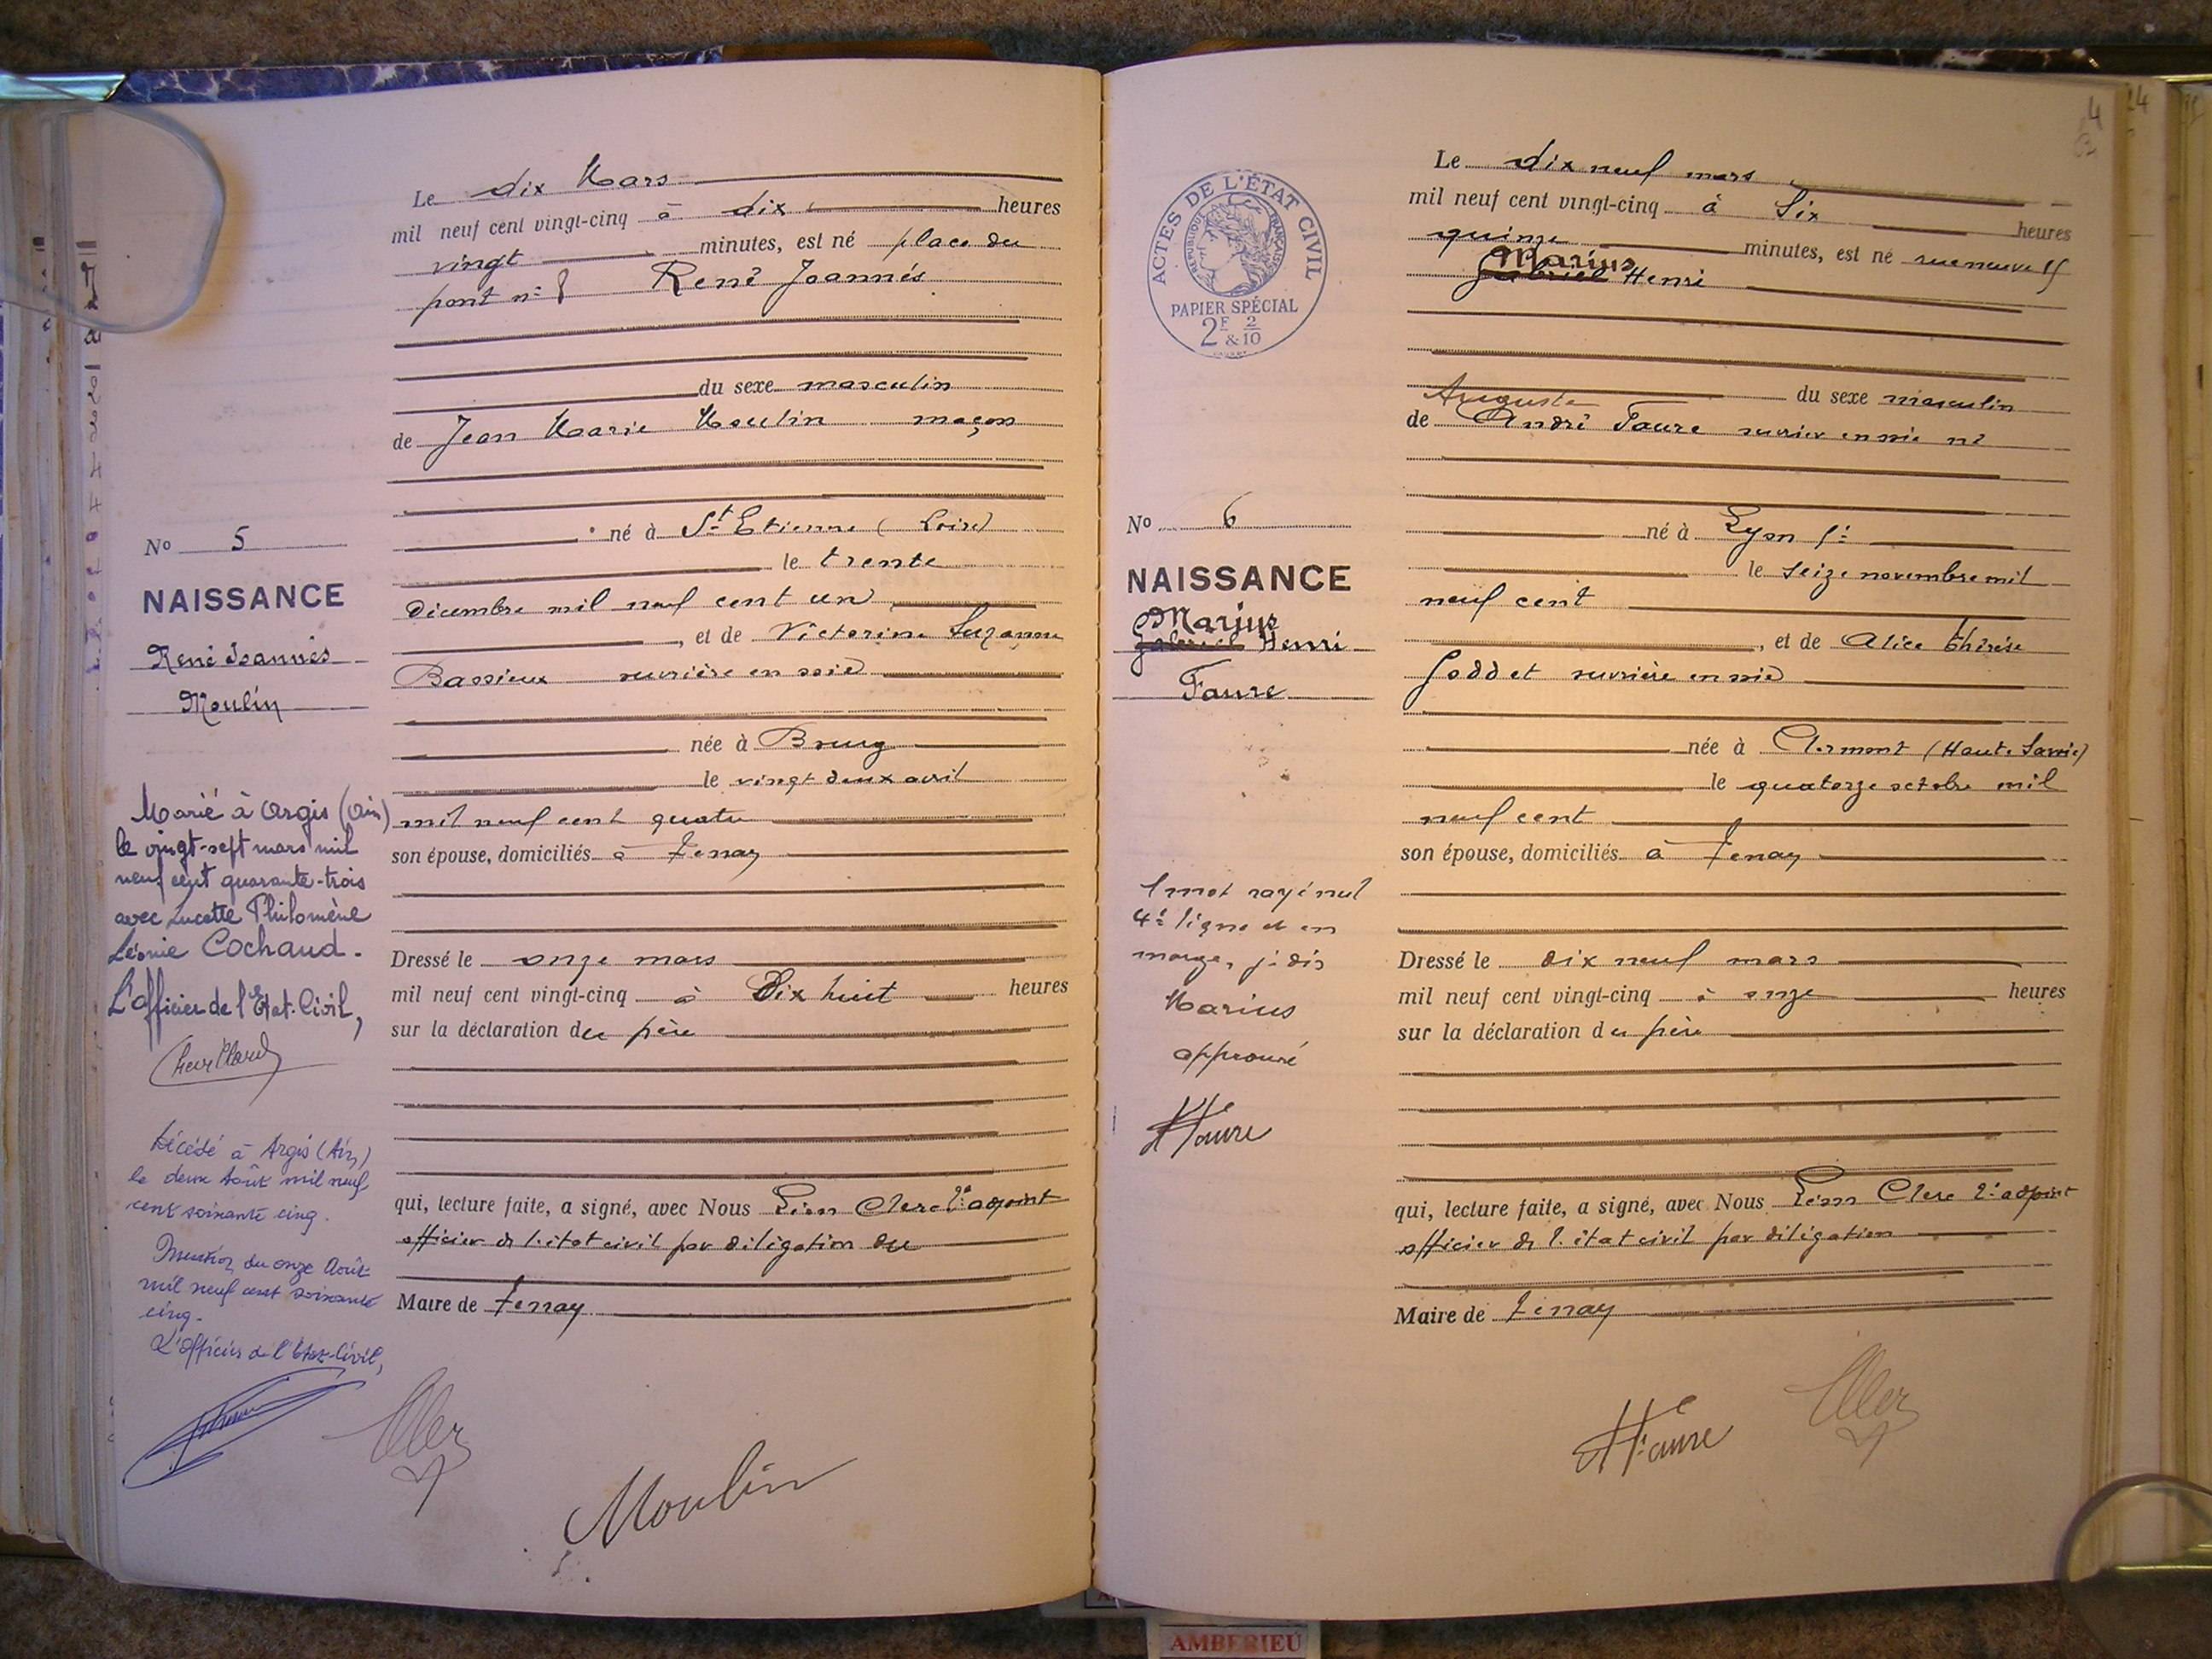 Le dix Mars
mil neuf cent vingt-cinq à dix heures
vingt minutes, est né place du
pont n° 8 René Joannés
du sexe masculin
de Jean Marie Moulin maçon
né à St Etienne (Loire)
le trente
décembre mil neuf cent un
, et de Victorine Suzanne
Bassieux ouvrière en soie
née à Bourg
le vingt deux avril
mil neuf cent quatre
son épouse, domiciliés à Tenay
Dressé le onze mars
mil neuf cent vingt-cinq à Dix huit heures
sur la déclaration du père
qui, lecture faite, a signé, avec Nous Léon Clerc 2e adjoint
officier de l'état civil par délégation du
Maire de Tenay
No 5
NAISSANCE
René Joannès
Moulin
Marié à Argis (Ain)
le vingt-sept mars mil
neuf cent quarante-trois
avec Lucette Philomène
Léonie Cochaud.
L'officier de l'Etat-Civil,
Décédé à Argis (Ain)
le deux Août mil neuf
cent soixante cinq.
Mention du onze Août
mil neuf cent soixante
cinq.
L'Officier de l'Etat-Civil,
Moulin
4
ACTES DE L'ÉTAT CIVIL
RÉPUBLIQUE FRANÇAISE
PAPIER SPÉCIAL
2F & 2/10
Le dix neuf mars
mil neuf cent vingt-cinq à Six heures
quinze minutes, est né rue neuve
Marius
Gabriel Henri
du sexe masculin
Auguste
de André Faure ouvrier en soie né
né à Lyon
le seize novembre mil
neuf cent
, et de Alice Thérèse
Goddet ouvrière en soie
née à Clermont (Haute Savoie)
le quatorze octobre mil
neuf cent
son épouse, domiciliés à Tenay
Dressé le dix neuf mars
mil neuf cent vingt-cinq à onze heures
sur la déclaration du père
qui, lecture faite, a signé, avec Nous Léon Clerc 2e adjoint
officier de l'état civil par délégation
Maire de Tenay
No 6
NAISSANCE
Marius
Gabriel Henri
Faure
1 mot rayé nul
4e ligne et en
marge, je dis
Marius
approuvé
Faure
Faure
AMBERIEU